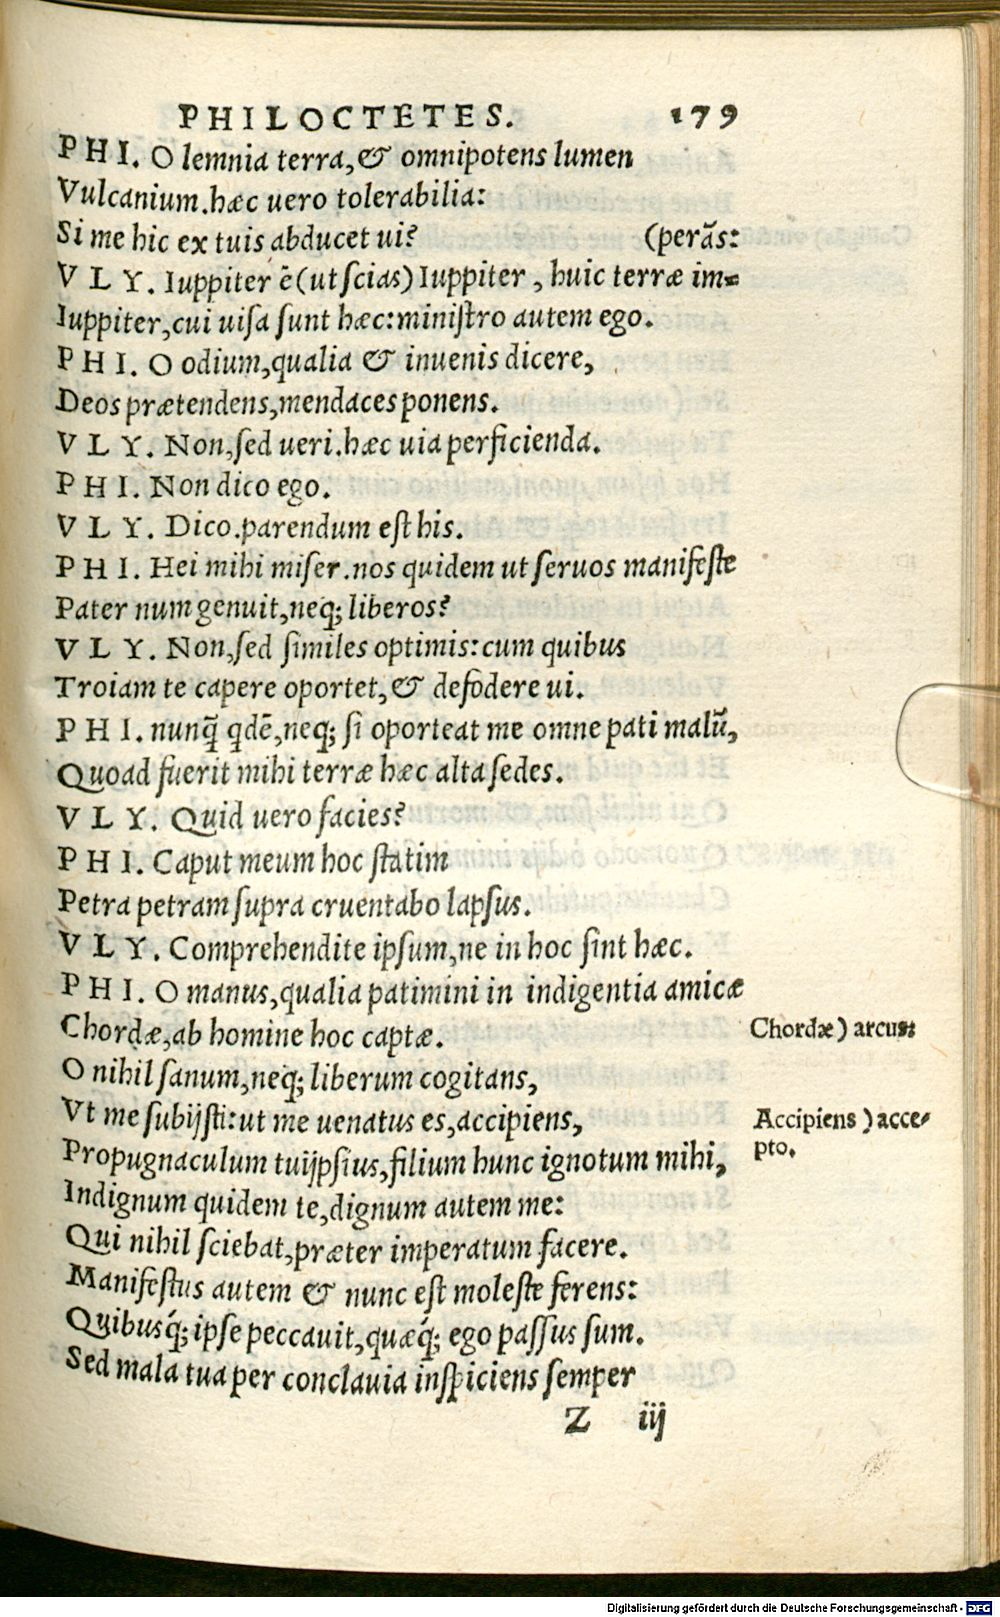 PHILOCTETES. 179
PHI. O lemnia terra, & omnipotens lumen
Vulcanium. hæc uero tolerabilia:
Si me hic ex tuis abducet ui? (perãs:
VLY. Iuppiter ẽ (ut scias) Iuppiter, huic terræ im-
Iuppiter, cui uisa sunt hæc: ministro autem ego.
PHI. O odium, qualia & inuenis dicere,
Deos prætendens, mendaces ponens.
VLY. Non, sed ueri. hæc uia perficienda.
PHI. Non dico ego.
VLY. Dico. parendum est his.
PHI. Hei mihi miser. nos quidem ut seruos manifeste
Pater num genuit, neq; liberos?
VLY. Non, sed similes optimis: cum quibus
Troiam te capere oportet, & defodere ui.
PHI. nunq̃ qdẽ, neq; si oporteat me omne pati malũ,
Quoad fuerit mihi terræ hæc alta sedes.
VLY. Quid uero facies?
PHI. Caput meum hoc statim
Petra petram supra cruentabo lapsus.
VLY. Comprehendite ipsum, ne in hoc sint hæc.
PHI. O manus, qualia patimini in indigentia amicæ
Chordæ, ab homine hoc captæ.
Chordæ) arcus:
O nihil sanum, neq; liberum cogitans,
Vt me subijsti: ut me uenatus es, accipiens,
Accipiens) acce-
pto.
Propugnaculum tuijpsius, filium hunc ignotum mihi,
Indignum quidem te, dignum autem me:
Qui nihil sciebat, præter imperatum facere.
Manifestus autem & nunc est moleste ferens:
Quibusq́; ipse peccauit, quæq́; ego passus sum.
Sed mala tua per conclauia inspiciens semper
Z iij
Digitalisierung gefördert durch die Deutsche Forschungsgemeinschaft - DFG